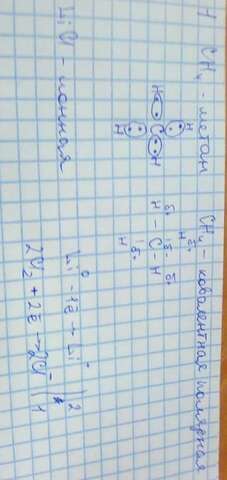 1 CH₄ - метан CH₄ - ковалентная полярная
H
H C H
H
δ+
H
δ+ | δ- δ+
H - C - H
| δ+
H
LiCl - ионная
Li⁰ - 1ē → Li⁺ | 2
2Cl₂ + 2ē → 2Cl⁻ | 1